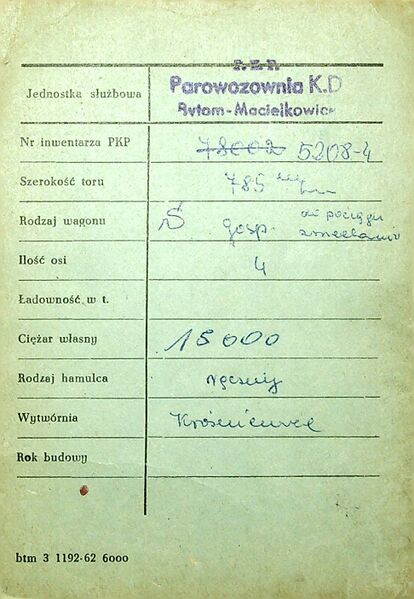 P. K. P.
Parowozownia K.D
Jednostka służbowa
Bytom-Maciejkowice
Nr inwentarza PKP 78002 5208-4
Szerokość toru 785
Rodzaj wagonu S gosp. do pociągu
Ilość osi 4
Ładowność w t.
Ciężar własny 15000
Rodzaj hamulca ręczny
Wytwórnia
Rok budowy
btm 3 1192-62 6000